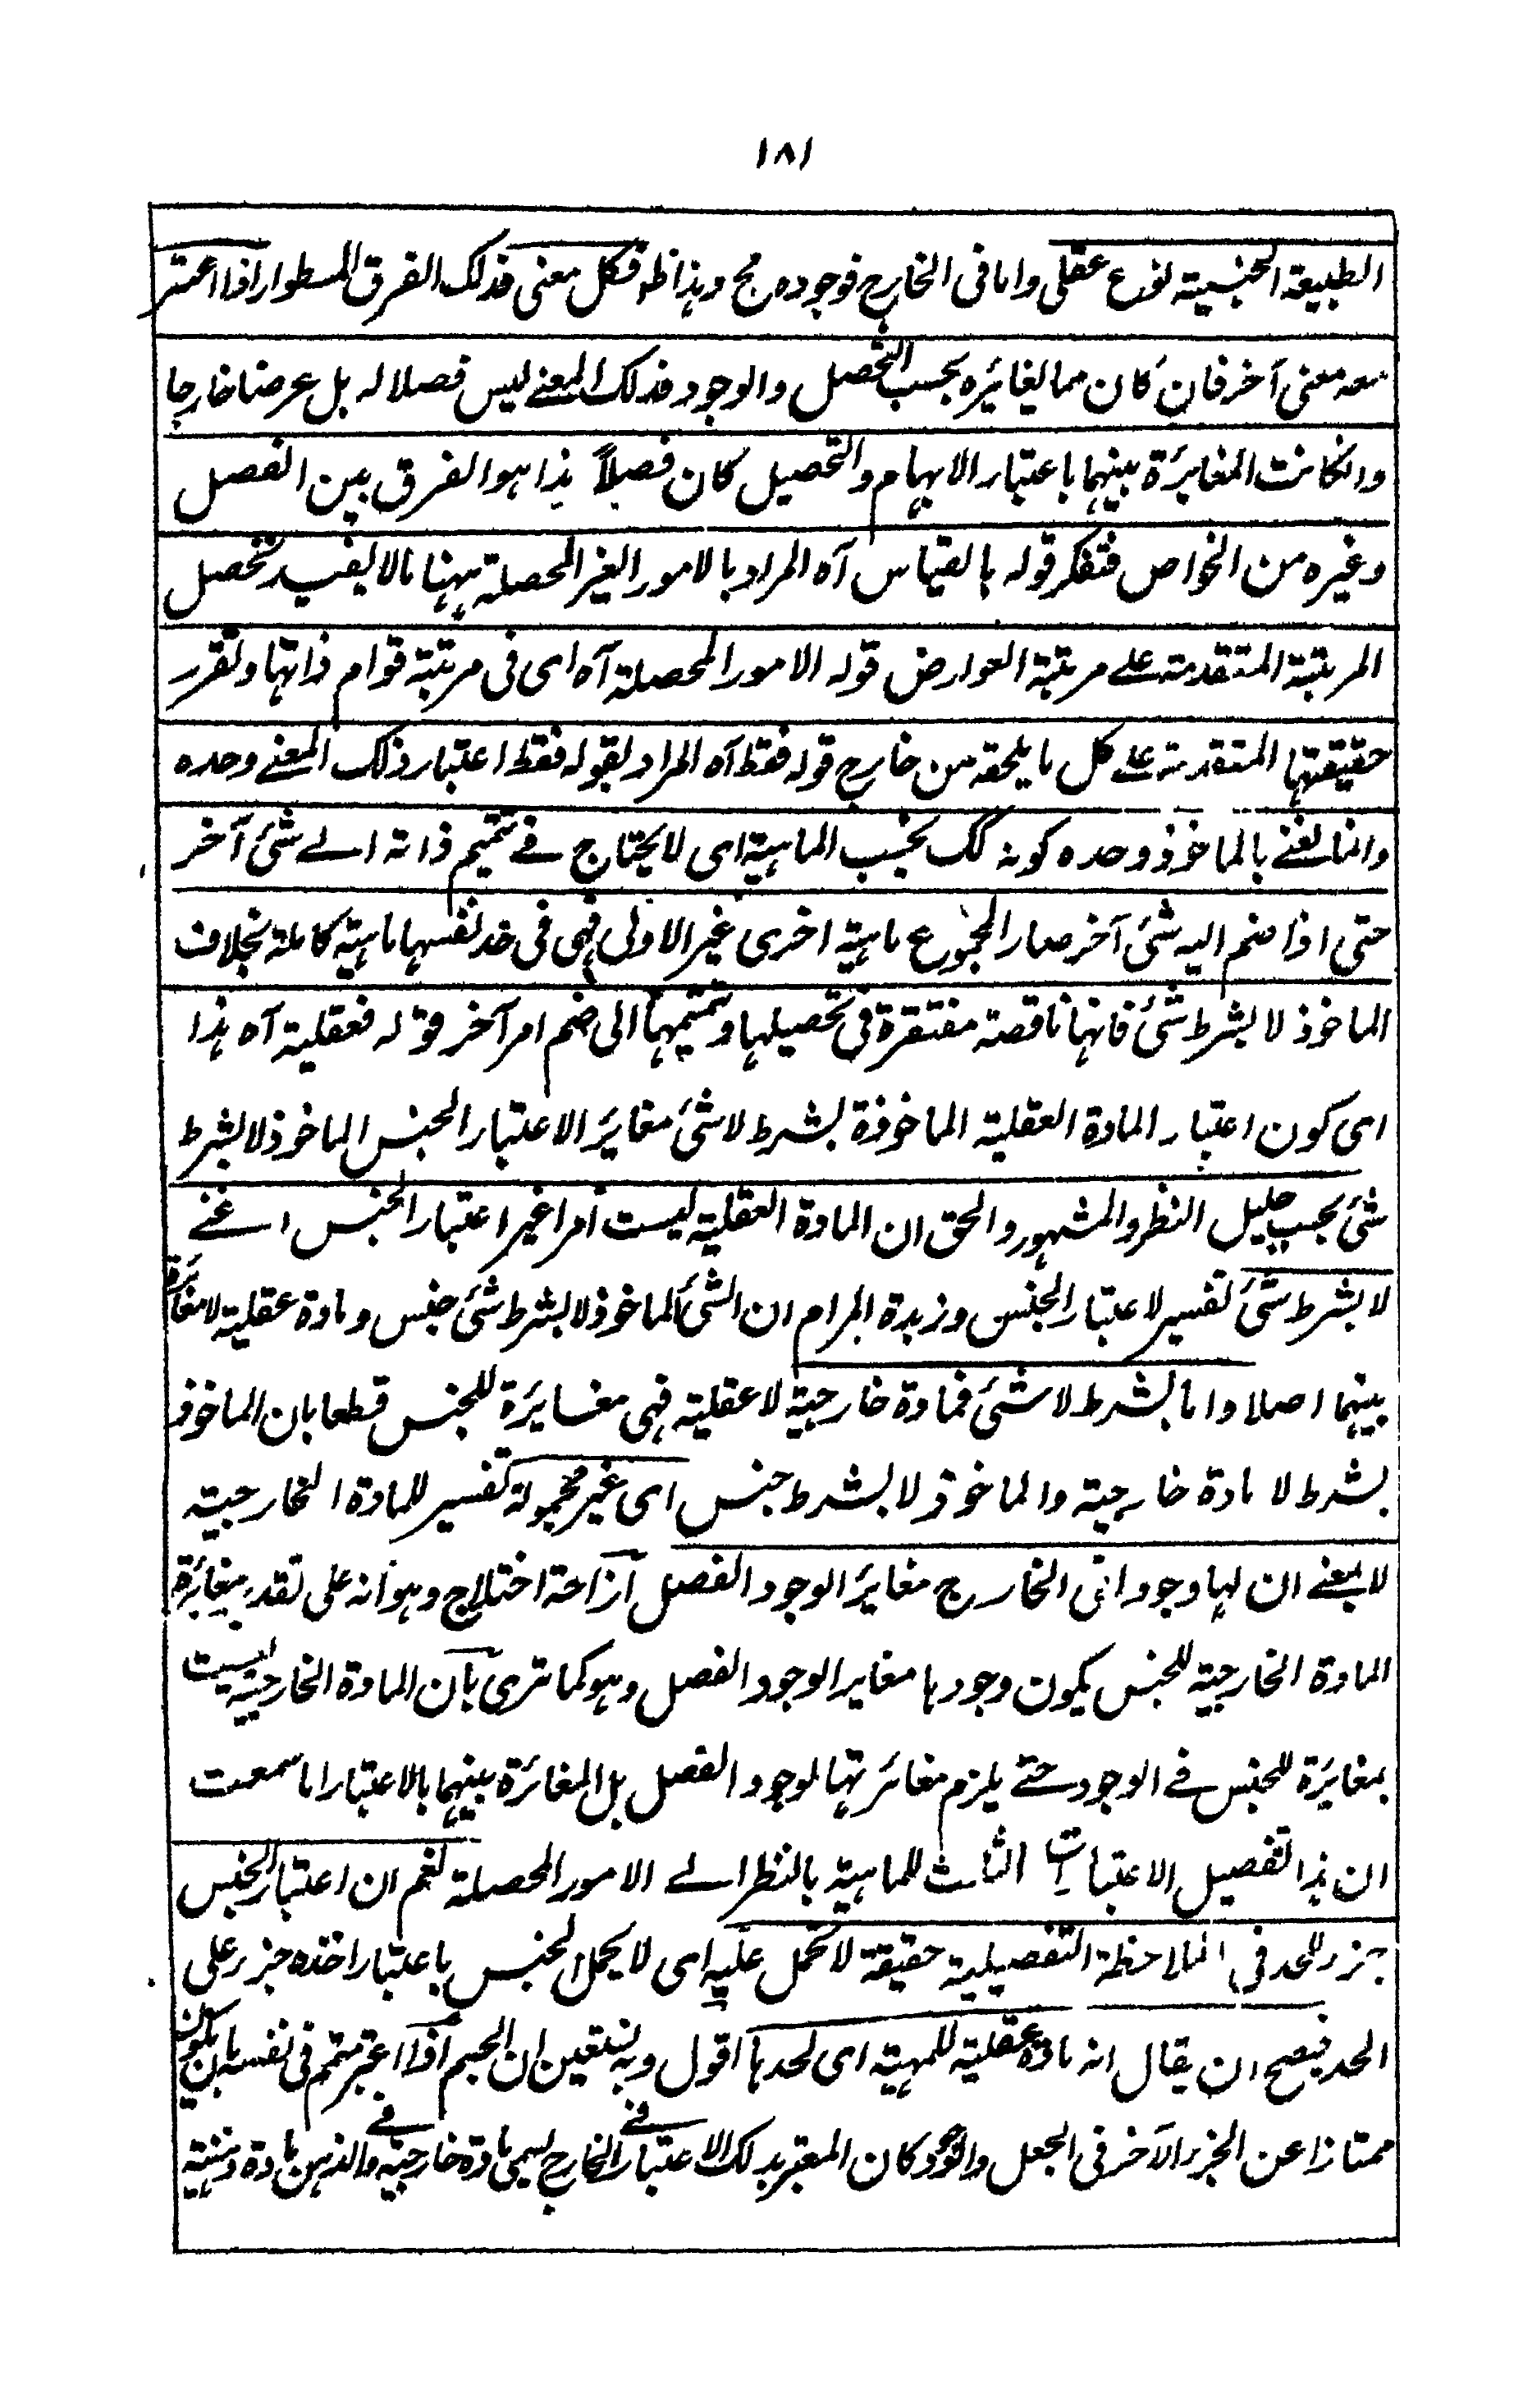 ۱۸۱
الطبيعة الجنسية نوع عقلى واما فى الخارج فوجوده مج وهذا ظه فكل معنى فذلك الفرق المسطوار اذا اعتبر
معه معنى آخر فان كان مما يغائره بحسب التحصل والوجود فذلك المعنے ليس فصلا له بل عرضا خارجا
وانكانت المغائرة بينهما باعتبار الابهام والتحصيل كان فصلاً هذا هو الفرق بين الفصل
وغيره من الخواص فتفكر قوله بالقياس آه المراد بالامور الغير المحصلة ههنا مالا يفيد تحصل
المرتبة المتقدمة علے مرتبة العوارض قوله الامور المحصلة آه اى فى مرتبة قوام ذاتها وتقرر
حقيقتها المتقدمة علے كل ما يلحقه من خارج قوله فقط آه المراد بقوله فقط اعتبار ذلك المعنے وحده
وانما نعنے بالماخوذ وحده كونه كك بحسب الماهية اى لا يحتاج فے تتميم ذاته الے شئ آخر
حتى اذا ضم اليه شئ آخر صار المجموع ماهية اخرى غير الاولى فهى فى حد نفسها ماهية كاملة بخلاف
الماخوذ لا بشرط شئ فانها ناقصة مفتقرة فى تحصيلها وتتميمها الى ضم امر آخر قوله فعقلية آه هذا
اى كون اعتبار المادة العقلية الماخوذة بشرط لا شئ مغائر الاعتبار الجنس الماخوذ لا بشرط
شئ بحسب جليل النظر والمشهور والحق ان المادة العقلية ليست امرا غير اعتبار الجنس اعنے
لا بشرط شئ تفسير لاعتبار الجنس وزبدة المرام ان الشئ الماخوذ لا بشرط شئ جنس ومادة عقلية لا مغائرة
بينهما اصلا واما بشرط لا شئ فمادة خارجية لا عقلية فهى مغايرة للجنس قطعا بان الماخوذ
بشرط لا مادة خارجية والماخوذ لا بشرط جنس اى غير محمولة تفسير للمادة الخارجية
لا بمعنے ان لها وجودا فى الخارج مغائر الوجود الفصل ازاحة اختلاج وهو انه على تقدير مغائرة
المادة الخارجية للجنس يكون وجودها مغاير الوجود الفصل وهو كما ترى بان المادة الخارجية ليست
بمغائرة للجنس فے الوجود حتے يلزم مغائرتها لوجود الفصل بل المغائرة بينهما بالاعتبار اما سمعت
ان هذا تفصيل الاعتبارات الثلث للماهية بالنظر الے الامور المحصلة نعم ان اعتبار الجنس
جزء للحد فى الملاحظة التفصيلية حقيقة لا تحمل عليه اى لا يحمل الجنس باعتبار اخذه جزء على
الحد فيصح ان يقال انه مادة عقلية للمهية اى لحدها اقول وبه يتعين ان الجسم اذا اعتبر متمم فى نفسه بان يكون
ممتازا عن الجزء الآخر فى الجعل والوجود كان المعتبر بذلك الاعتبار فے الخارج يسمى مادة خارجية وفے الذهن مادة ذهنية